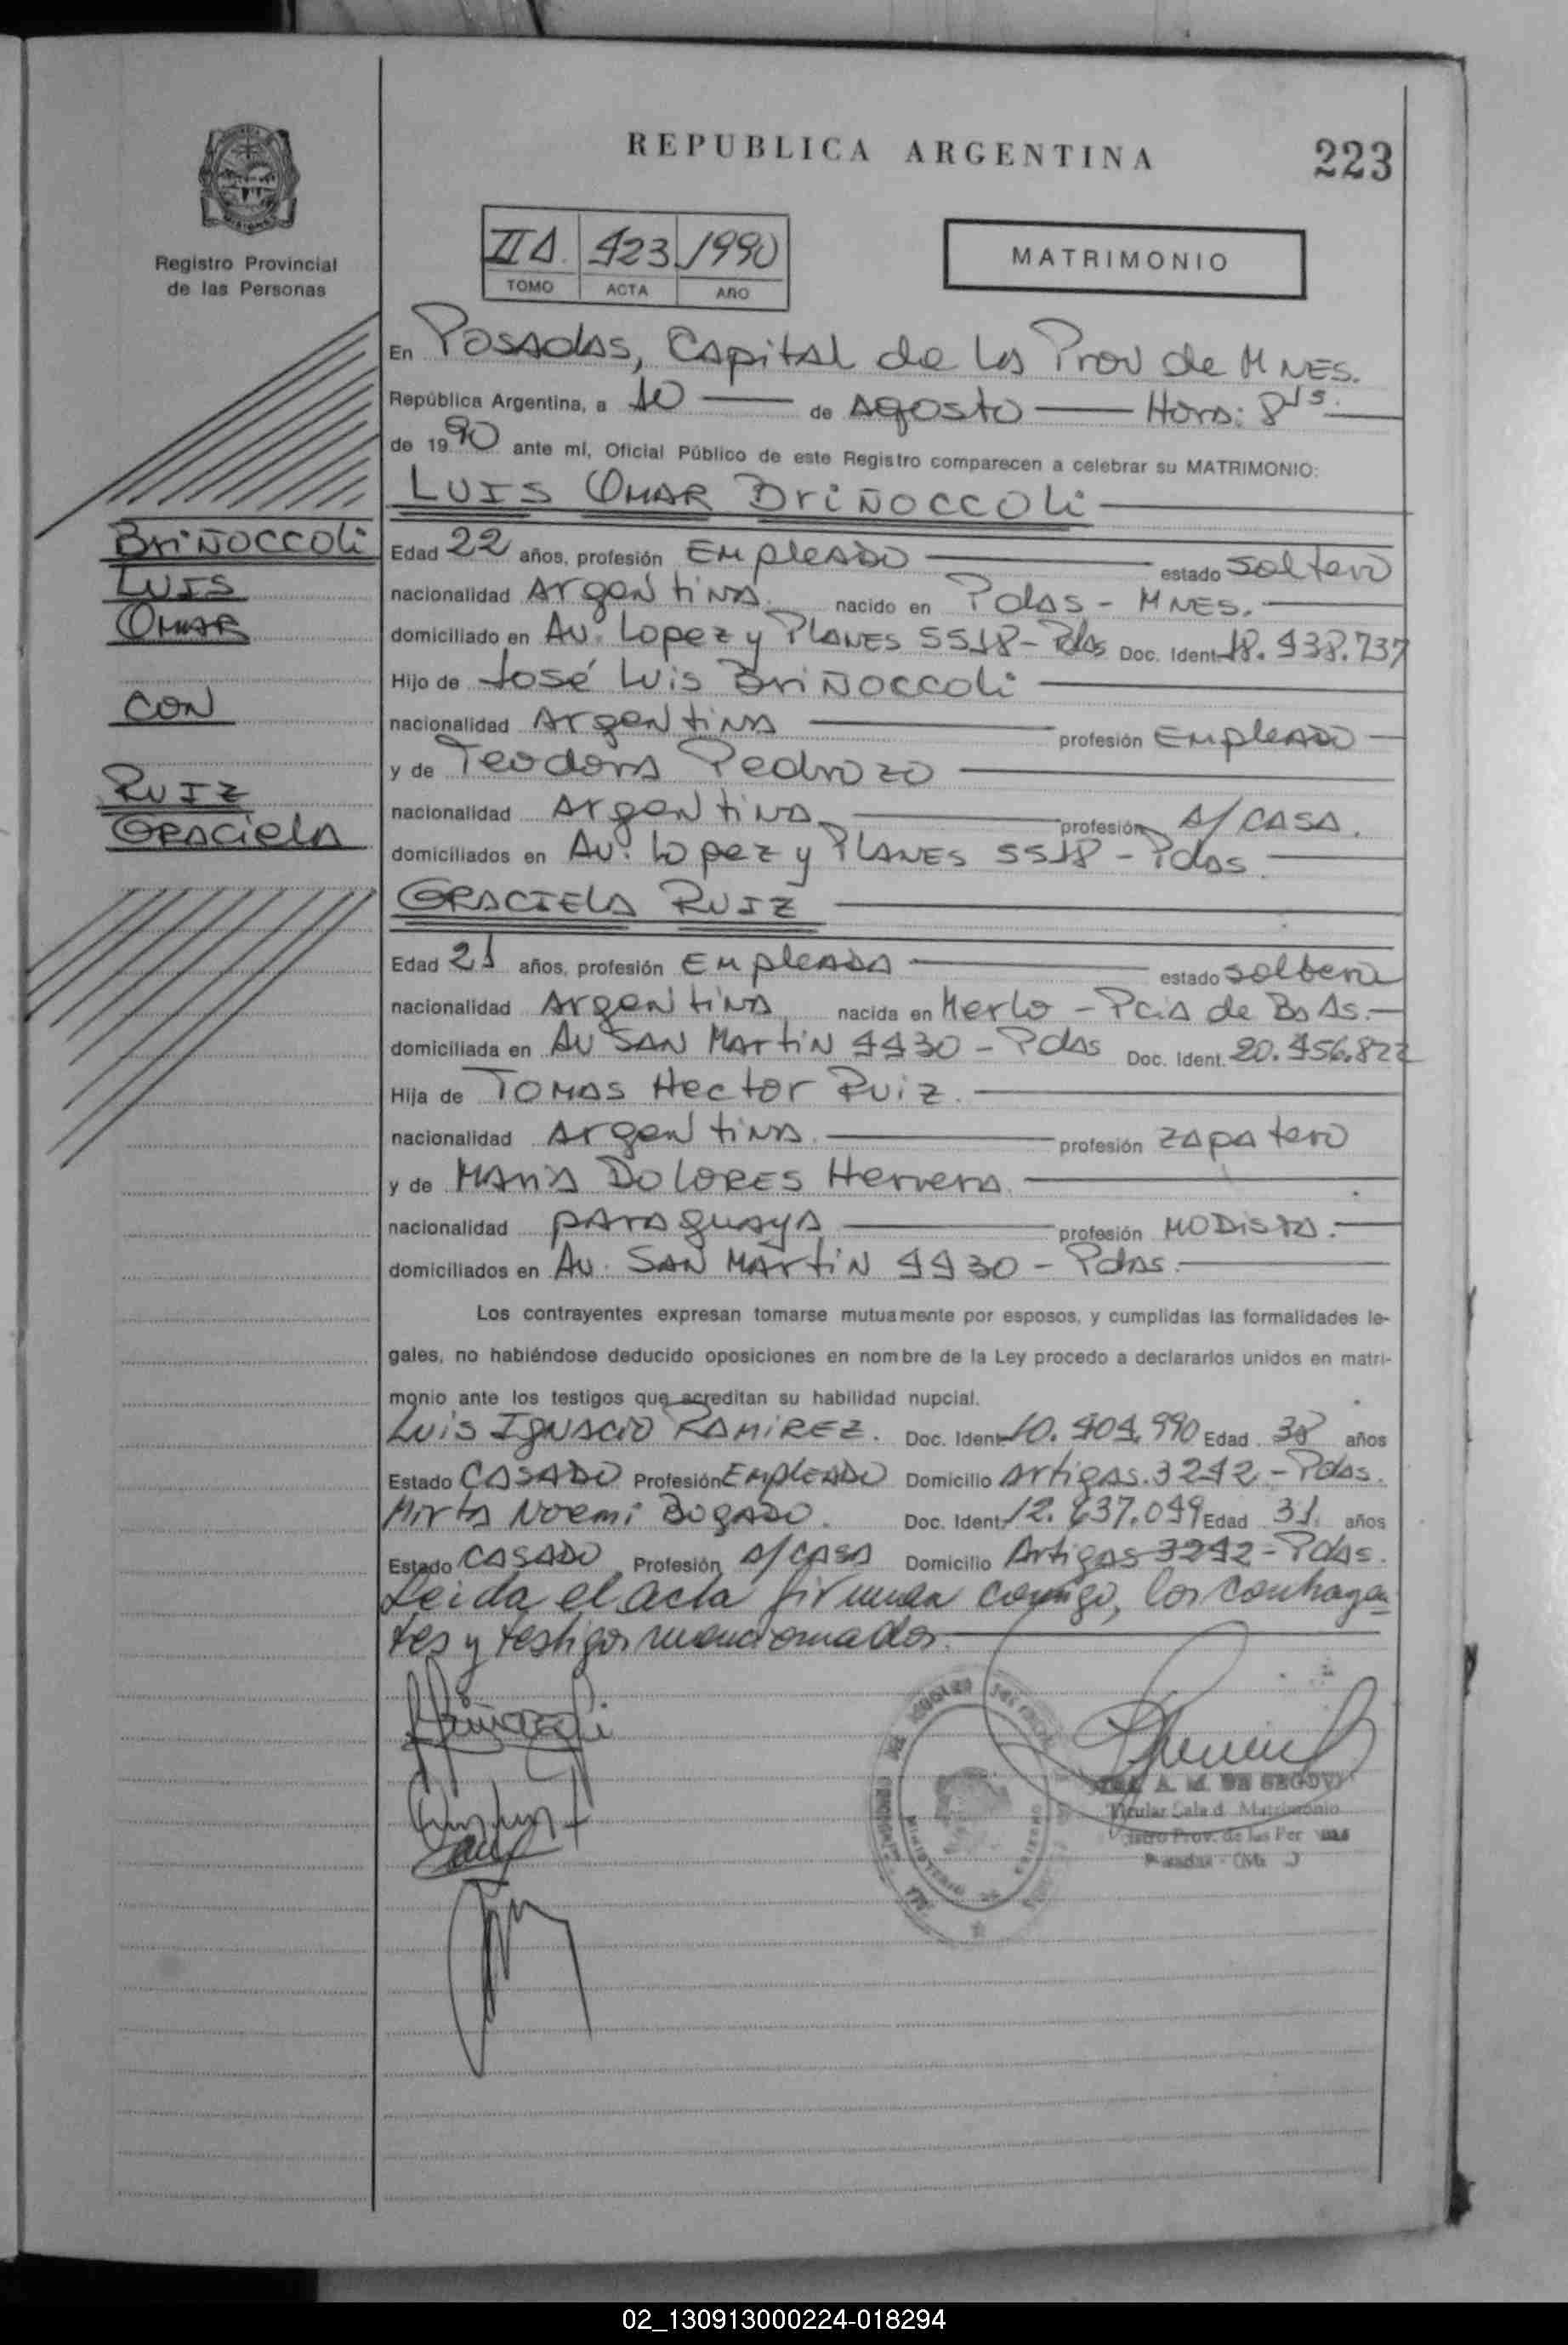 REPUBLICA ARGENTINA
223
Registro Provincial
de las Personas
II A. 423 1990
TOMO ACTA AÑO
MATRIMONIO
En Posadas, Capital de la Prov de MNES.
República Argentina, a 10 de Agosto Hora: 8
de 1990 ante mí, Oficial Público de este Registro comparecen a celebrar su MATRIMONIO:
LUIS OMAR BRIÑOCCOLI
BRIÑOCCOLI
LUIS
OMAR
CON
RUIZ
GRACIELA
Edad 22 años, profesión EMPLEADO estado soltero
nacionalidad Argentina. nacido en Pdas - MNES.
domiciliado en Av. Lopez y PLANES 5518 - Pdas Doc. Ident. 18.438.737
Hijo de José Luis BRIÑOCCOLI
nacionalidad Argentina profesión EMPLEADO
y de Teodora Pedrozo
nacionalidad Argentina profesión A/CASA.
domiciliados en Av. Lopez y PLANES 5518 - Pdas.
GRACIELA RUIZ
Edad 21 años, profesión EMPLEADA estado soltera
nacionalidad Argentina nacida en Merlo - Pcia de Bs As.
domiciliada en Av SAN MARTIN 4430 - Pdas Doc. Ident. 20.456.822
Hija de TOMAS Hector Ruiz.
nacionalidad Argentina. profesión ZAPATERO
y de MARIA DOLORES Herrera.
nacionalidad PARAGUAYA profesión MODISTA.
domiciliados en Av. SAN MARTIN 4430 - Pdas.
Los contrayentes expresan tomarse mutuamente por esposos, y cumplidas las formalidades le-
gales, no habiéndose deducido oposiciones en nombre de la Ley procedo a declararlos unidos en matri-
monio ante los testigos que acreditan su habilidad nupcial.
LUIS IGNACIO RAMIREZ. Doc. Ident. 10.404.990 Edad 38 años
Estado CASADO Profesión EMPLEADO Domicilio Artigas. 3242 - Pdas.
Mirta Noemi BOGADO. Doc. Ident. 12.637.049 Edad 31. años
Estado CASADO Profesión A/CASA Domicilio Artigas 3242 - Pdas.
Leida el acta firman conmigo, los contrayen=
tes y testigos mencionados.
A. M. DE SEGOVI
Titular Sala d Matrimonio
istro Prov. de las Per nas
Posadas
02_130913000224-018294